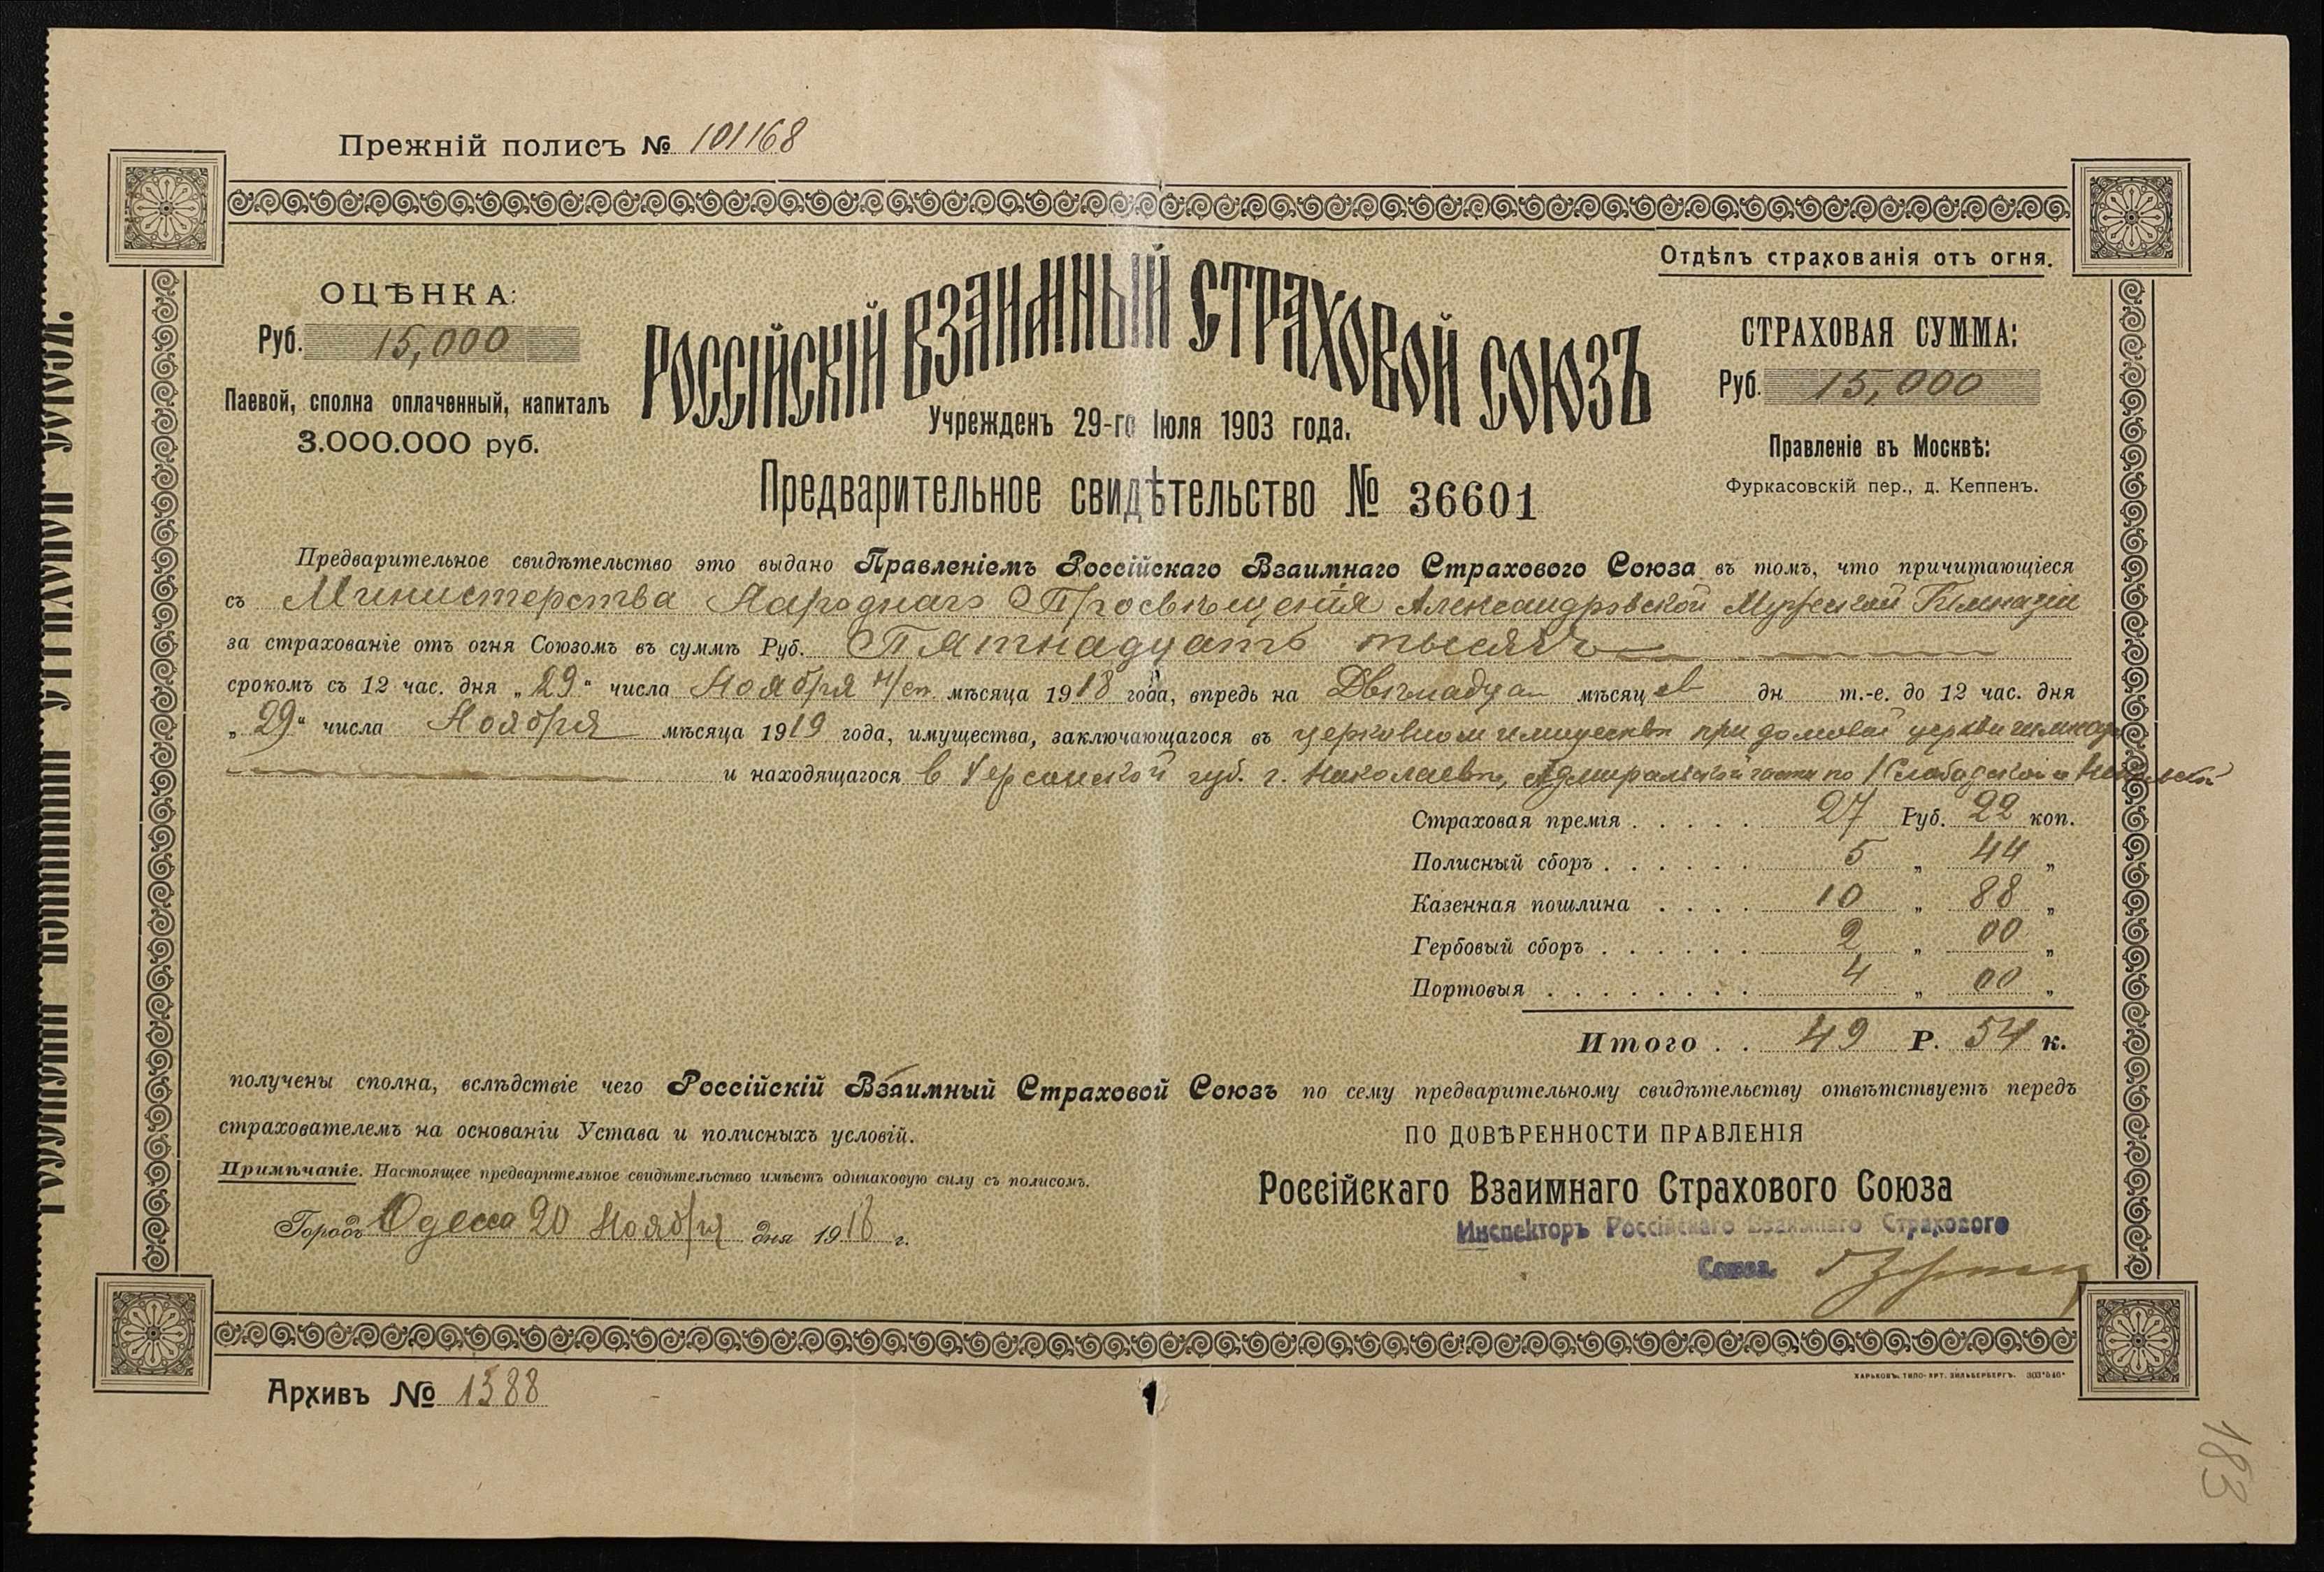 Прежній полисъ № 101168
Отдѣлъ страхованія отъ огня.
ОЦѢНКА:
Руб. 15,000
Паевой, сполна оплаченный, капиталъ
3.000.000 руб.
РОССІЙСКІЙ ВЗАИМНЫЙ СТРАХОВОЙ СОЮЗЪ
Учрежденъ 29-го Іюля 1903 года.
СТРАХОВАЯ СУММА:
Руб. 15,000
Правленіе въ Москвѣ:
Фуркасовскій пер., д. Кеппенъ.
Предварительное свидѣтельство № 36601
Предварительное свидѣтельство это выдано Правленіемъ Россійскаго Взаимнаго Страхового Союза въ томъ, что причитающіеся
съ Министерства Народнаго Просвѣщенія Александровской Мужской Гимназіи
за страхованіе отъ огня Союзомъ въ суммѣ Руб. Пятнадцать тысячъ
срокомъ съ 12 час. дня „29“ числа Ноября н/ст. мѣсяца 1918 года, впредь на Двѣнадцать мѣсяцев дн т.-е. до 12 час. дня
„29“ числа Ноября мѣсяца 1919 года, имущества, заключающагося въ церковном имуществѣ при домовой церкви гимназіи
и находящагося в Херсонской губ. г. Николаевѣ, Адмиральской части по Слободской и
Страховая премія 27 Руб. 22 коп.
Полисный сборъ 5 „ 44 „
Казенная пошлина 10 „ 88 „
Гербовый сборъ 2 „ 00 „
Портовыя 4 „ 00 „
Итого 49 Р. 54 к.
получены сполна, вслѣдствіе чего Россійскій Взаимный Страховой Союзъ по сему предварительному свидѣтельству отвѣтствуетъ передъ
страхователемъ на основаніи Устава и полисныхъ условій.
ПО ДОВѢРЕННОСТИ ПРАВЛЕНІЯ
Примѣчаніе. Настоящее предварительное свидѣтельство имѣетъ одинаковую силу съ полисомъ.
Россійскаго Взаимнаго Страхового Союза
Городъ Одесса 20 Ноября дня 1918 г.
Инспекторъ Россійскаго Взаимнаго Страхового
Союза.
ХАРЬКОВЪ. ТИПО-ЛИТ. ЗИЛЬБЕРБЕРГЪ.
Архивъ № 1388
183